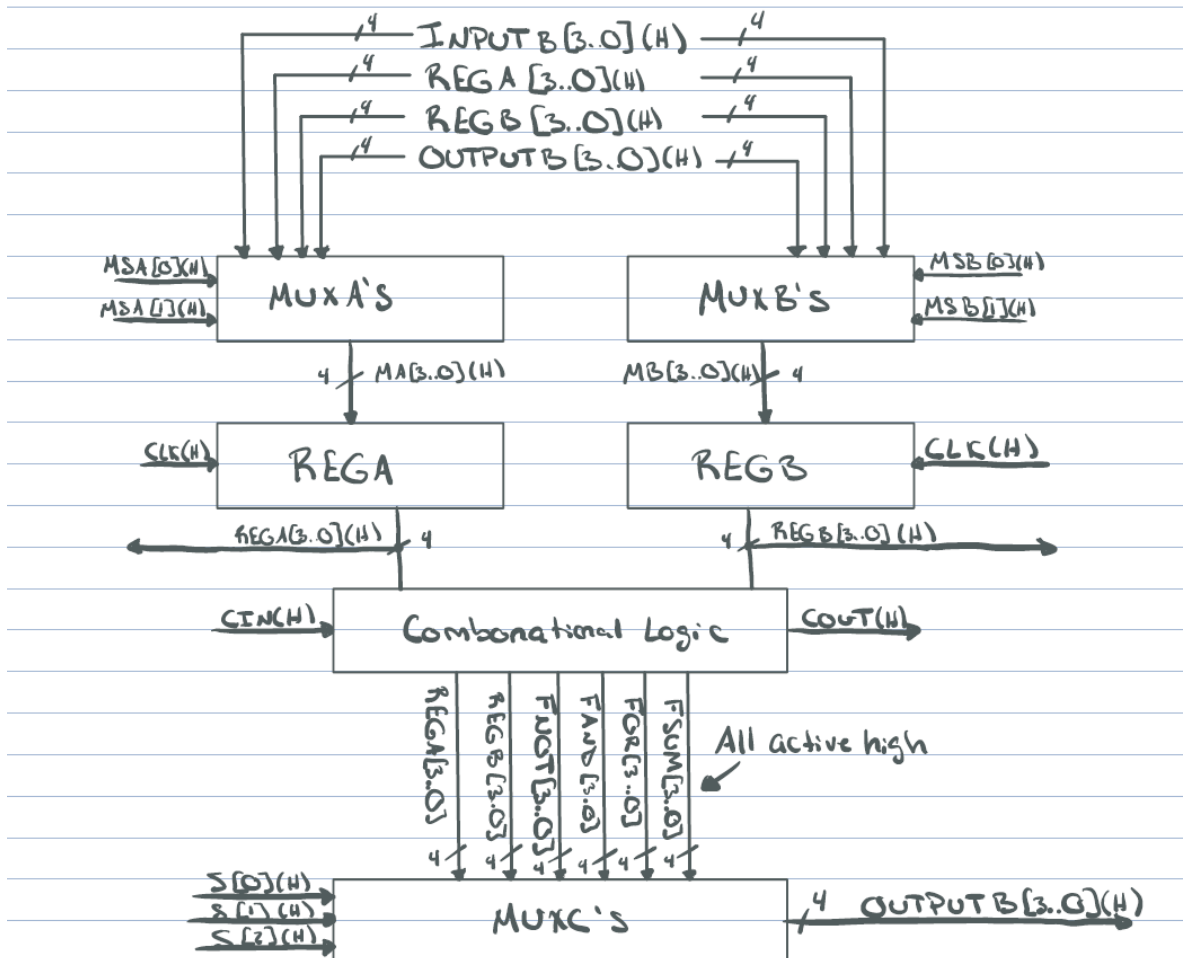 4 INPUTB[3..0](H) 4
4 REGA[3..0](H) 4
4 REGB[3..0](H) 4
4 OUTPUTB[3..0](H) 4
MSA[0](H)
MSA[1](H)
MUXA'S
MUXB'S
MSB[0](H)
MSB[1](H)
4 MA[3..0](H)
MB[3..0](H) 4
CLK(H)
REGA
REGB
CLK(H)
REGA[3..0](H) 4
4 REGB[3..0](H)
CIN(H)
Combonational Logic
COUT(H)
REGA[3..0]
REGB[3..0]
FNOT[3..0]
FAND[3..0]
FOR[3..0]
FSUM[3..0]
All active high
4 4 4 4 4 4
S[0](H)
S[1](H)
S[2](H)
MUXC's
4 OUTPUTB[3..0](H)